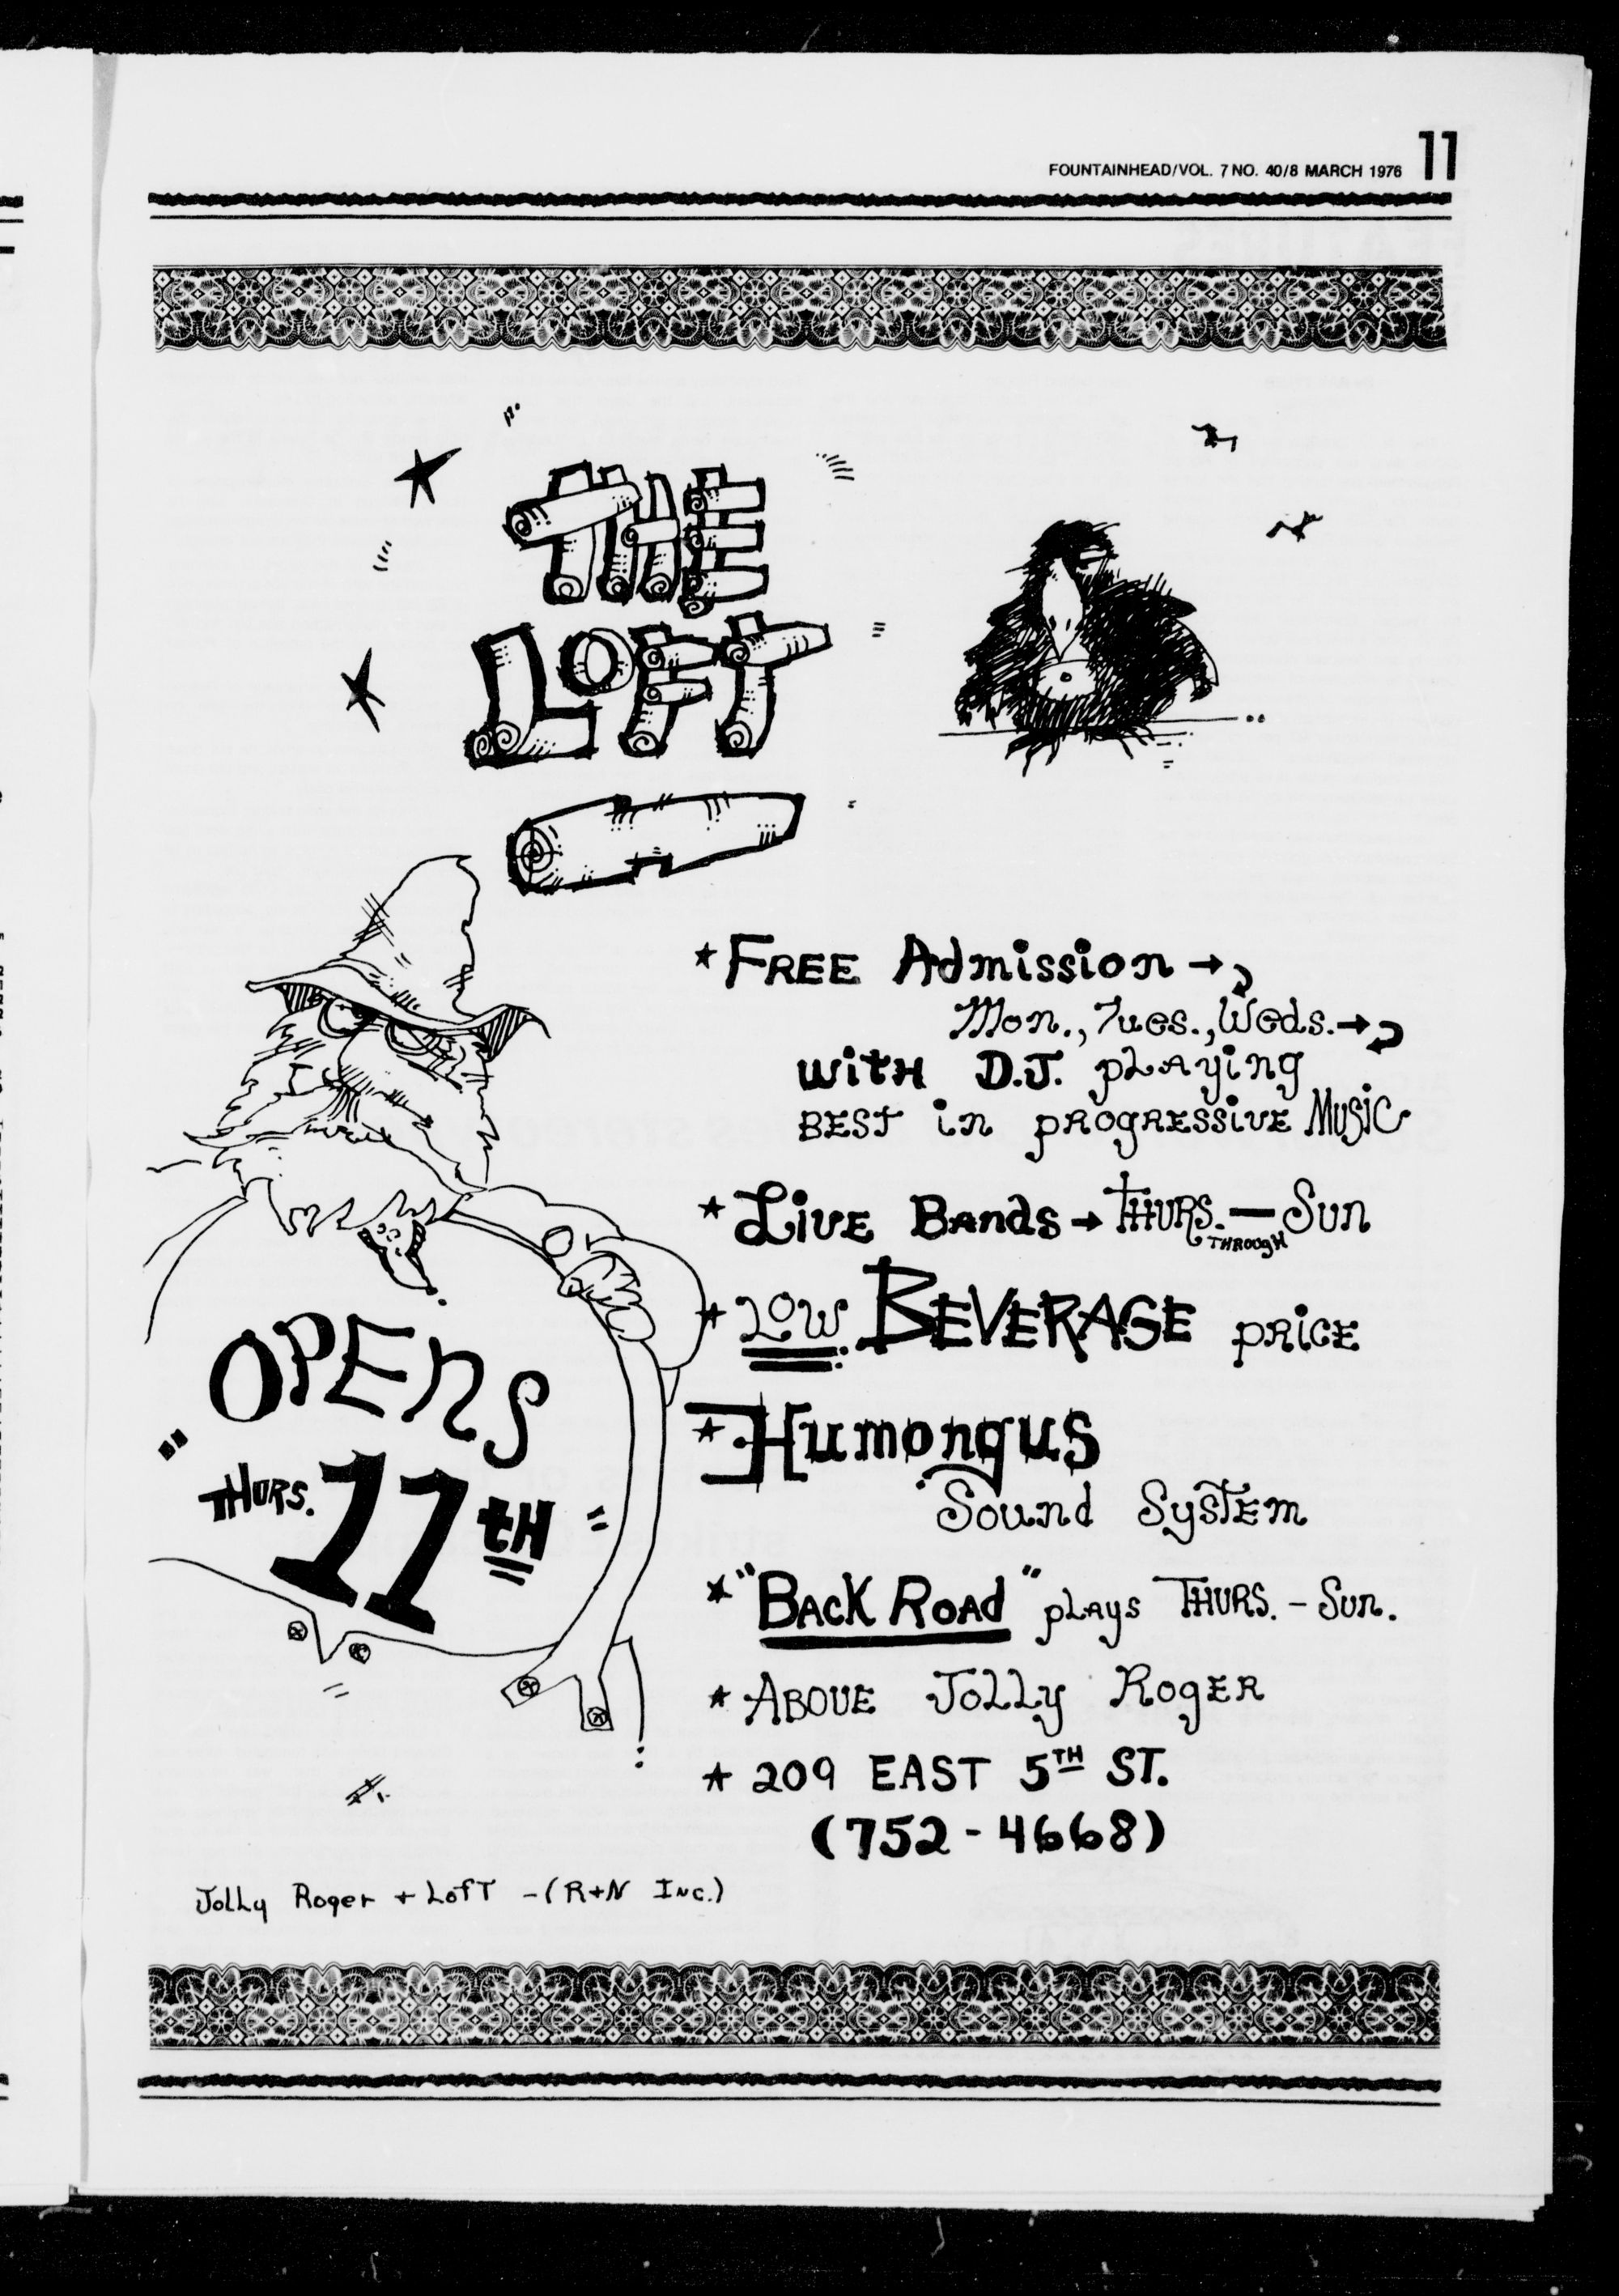 FOUNTAINHEAD/VOL. 7 NO. 40/8 MARCH 1976 11
THE
LOFT
* FREE Admission →
Mon., Tues., Weds. →
with D.J. playing
BEST in progressive Music
* Live Bands → THURS. — Sun
THROUGH
* Low BEVERAGE price
* Humongus
Sound System
* "Back Road" plays THURS. - Sun.
* Above Jolly Roger
* 209 EAST 5TH ST.
(752-4668)
OPENS
THURS. 11th
Jolly Roger + Loft - (R+N Inc.)